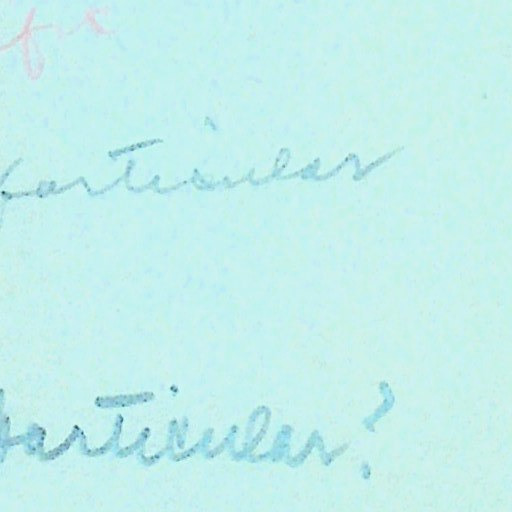 particular
particular?